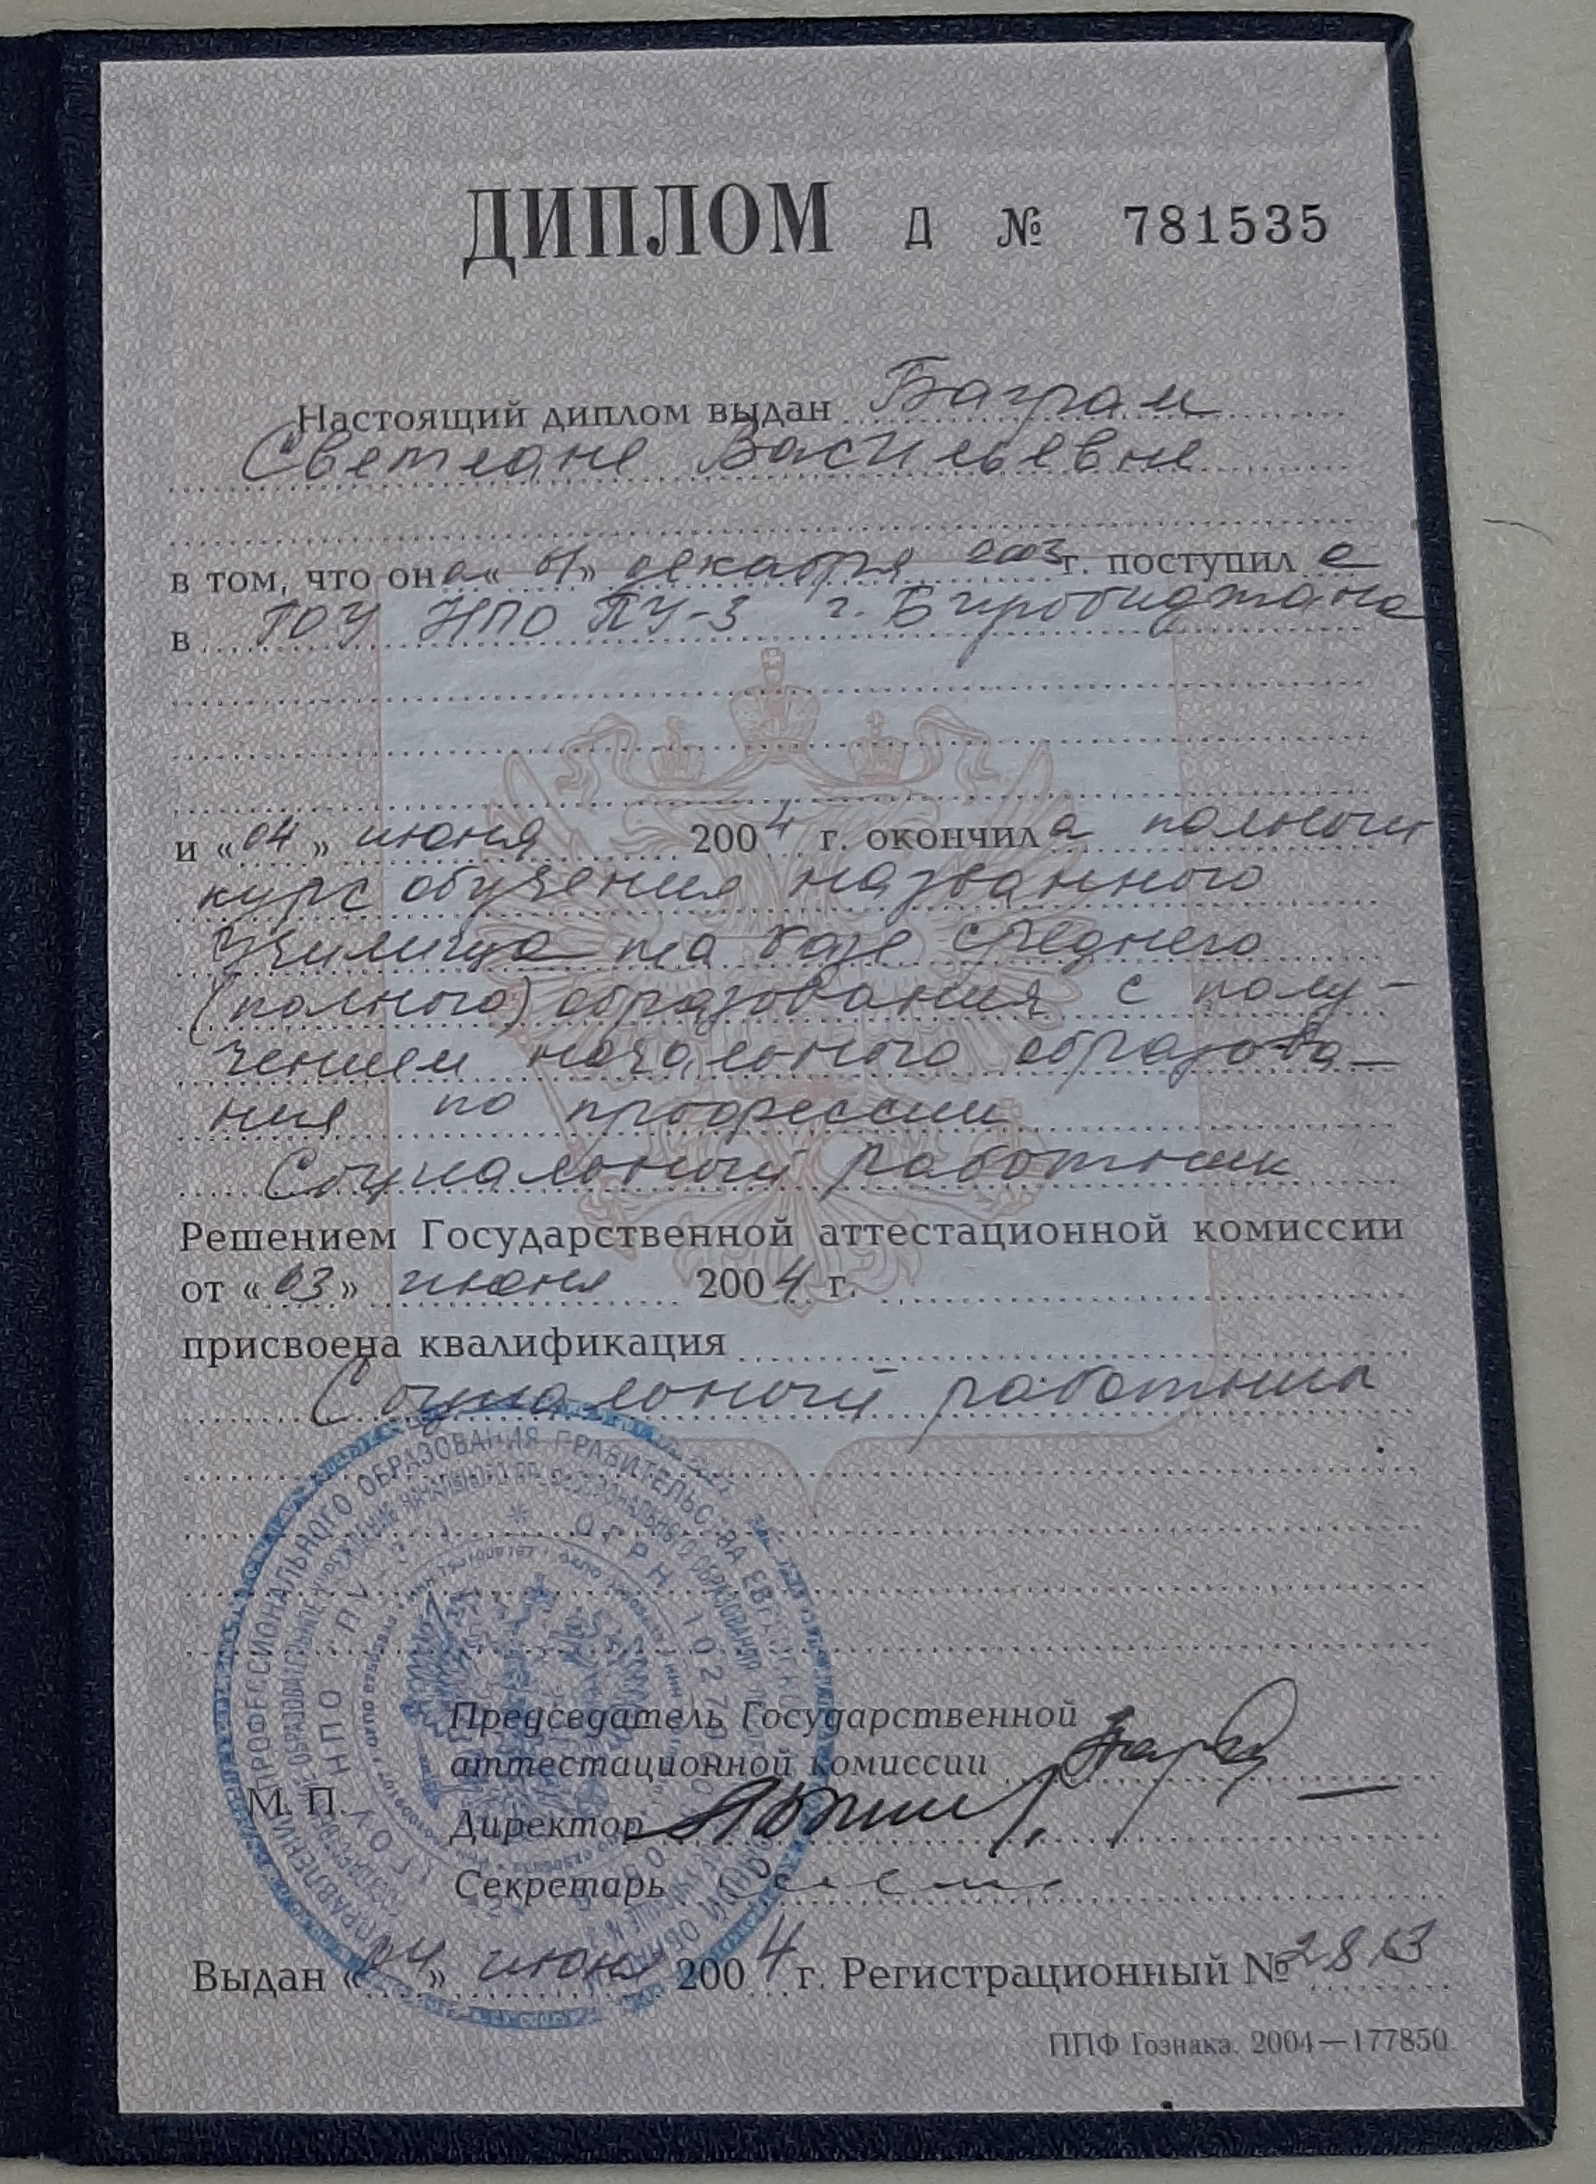 ДИПЛОМ Д № 781535
Настоящий диплом выдан Баграм
Светлане Васильевне
в том, что она «01» декабря 2003 г. поступила
в ГОУ НПО ПУ-3 г. Биробиджана
и «04» июня 2004 г. окончила полный
курс обучения названного
училища на базе среднего
(полного) образования с полу-
чением начального образова-
ния по профессии
Социальный работник
Решением Государственной аттестационной комиссии
от «03» июня 2004 г.
присвоена квалификация
Социальный работник
ПРОФЕССИОНАЛЬНОГО ОБРАЗОВАНИЯ ПРАВИТЕЛЬСТВА
ГОУ НПО ПУ-3 * ОГРН
Председатель Государственной
аттестационной комиссии
М. П.
Директор
Секретарь
Выдан «04» июня 2004 г. Регистрационный № 2813
ППФ Гознака. 2004—177850.